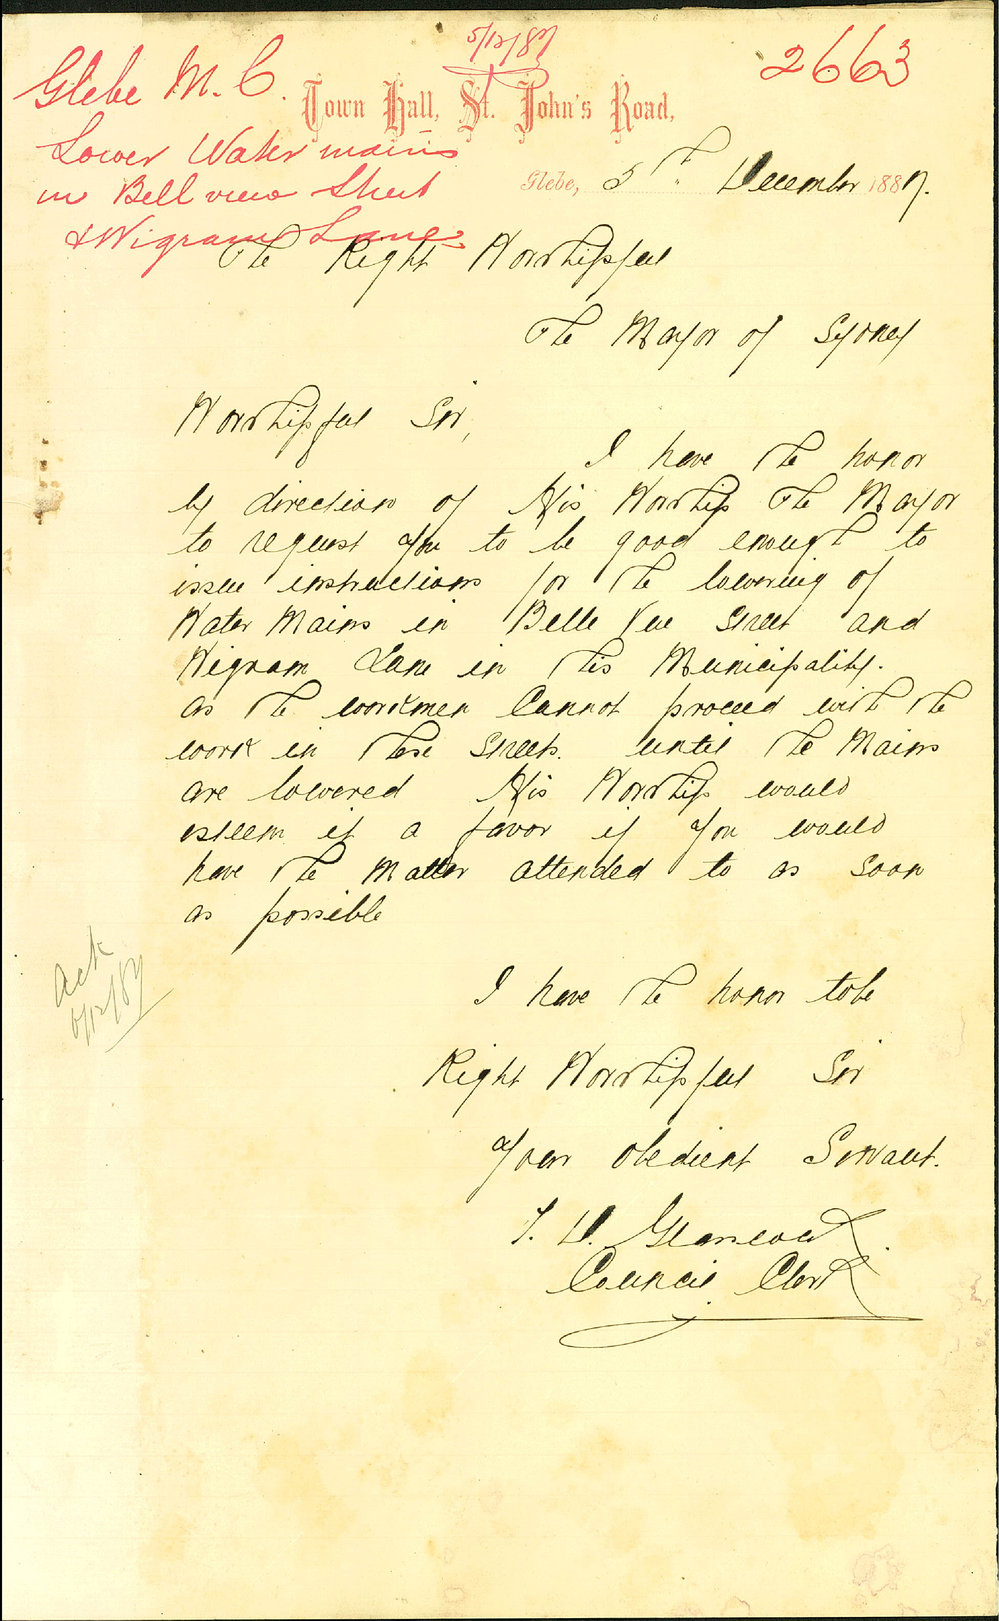 5/12/87
2663
Glebe M. C.
Town Hall, St. John's Road,
Lower Water mains
in Bellview Street
& Wigram Lane
Glebe, 5th. December 1887.
The Right Worshipful
The Mayor of Sydney
Worshipful Sir,
I have the honor
by direction of His Worship The Mayor
to request you to be good enough to
issue instructions for the lowering of
Water Mains in Belle Vue Street and
Wigram Lane in this Municipality.
as the workmen Cannot proceed with the
work in these Streets. until the Mains
are lowered His Worship would
esteem it a favor if you would
have the Matter attended to as soon
as possible
Ack
6/12/87
I have the honor to be
Right Worshipful Sir
Your obedient Servant.
T. D. Glasscock
Council Clerk